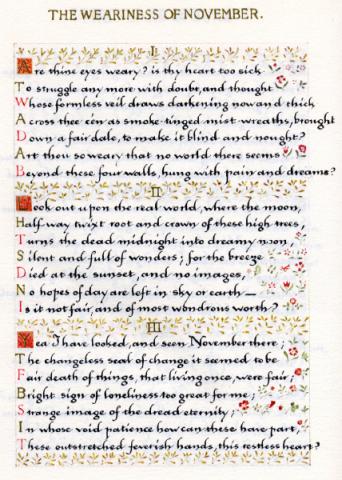 THE WEARINESS OF NOVEMBER.
I
Are thine eyes weary? is thy heart too sick
To struggle any more with doubt, and thought
Whose formless veil draws darkening now and thick
Across thee e'en as smoke-tinged mist-wreaths, brought
Down a fair dale, to make it blind and nought?
Art thou so weary that no world there seems
Beyond these four walls, hung with pain and dreams?
II
Look out upon the real world, where the moon,
Half-way twixt root and crown of these high trees,
Turns the dead midnight into dreamy noon,
Silent and full of wonders; for the breeze
Died at the sunset, and no images,
No hopes of day are left in sky or earth—
Is it not fair, and of most wondrous worth?
III
Yea I have looked, and seen November there;
The changeless seal of change it seemed to be
Fair death of things, that living once, were fair;
Bright sign of loneliness too great for me;
Strange image of the dread eternity;
In whose void patience how can these have part,
These outstretched feverish hands, this restless heart?